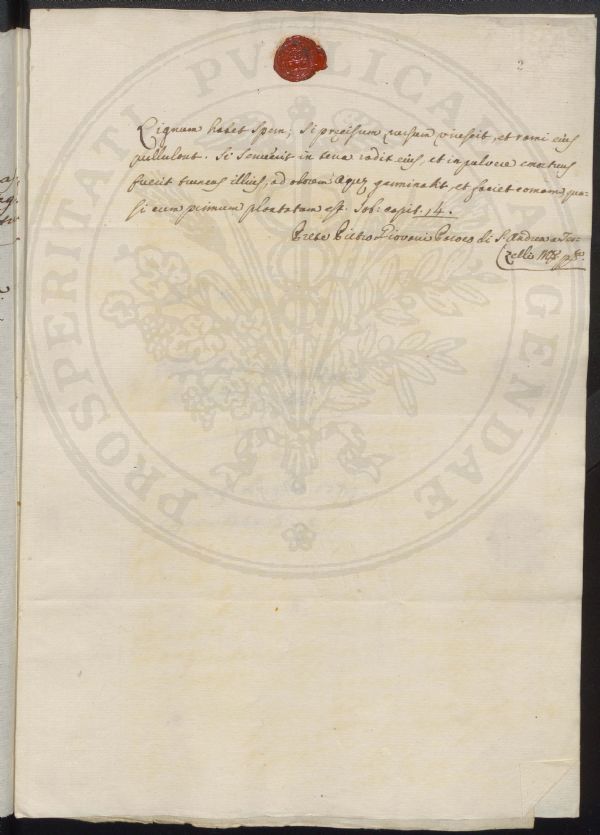 2
Lignum habet spem; si precisum rursum virescit, et rami eius
pullulant. Si senuerit in terra radix eius, et in pulvere emortuus
fuerit truncus illius, ad odorem aquę germinabit, et faciet comam qua-
si cum primum plantatum est. Job: capit. 14.
Prete Pietro Piovani di S. Andrea
PROSPERITATI PVBLICAE AVGENDAE